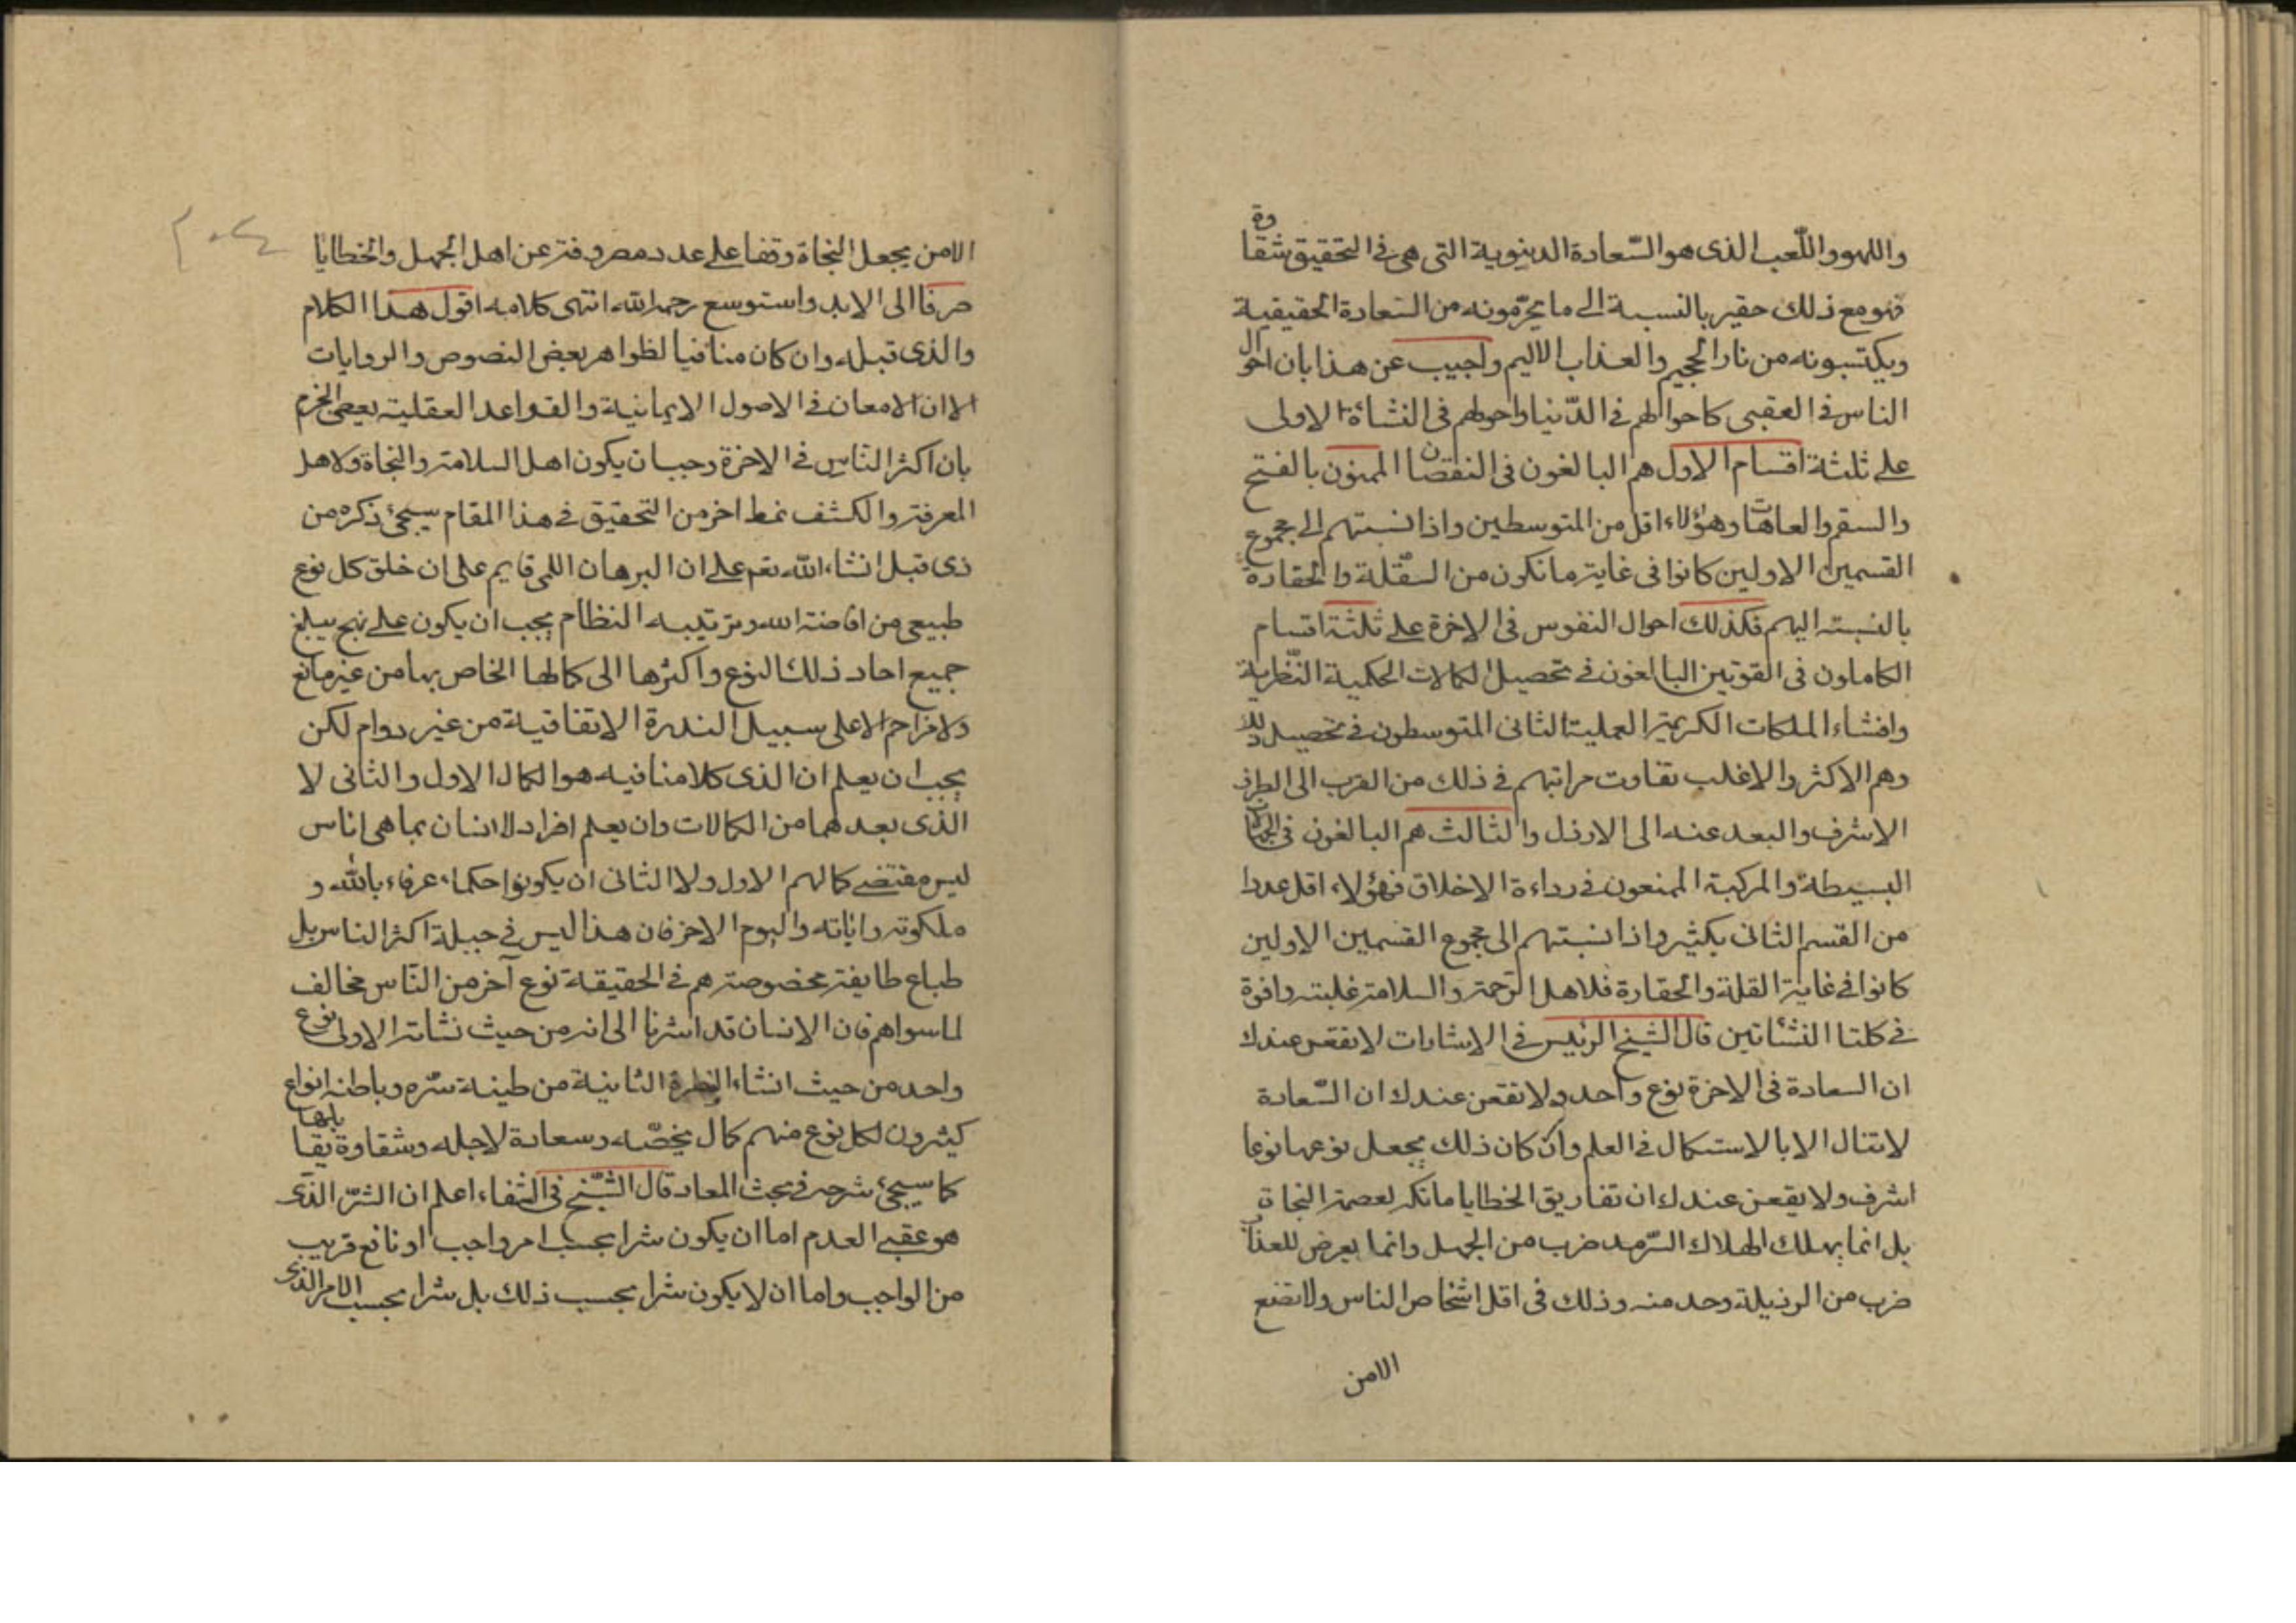 واللهو واللّعب الذى هو السّعادة الدينوية التى هى فى التحقيق شقاوة
فهو مع ذلك حقير بالنسبة الى ما يحرّمونه من السّعادة الحقيقية
ويكتسبونه من نار الجحيم والعذاب الاليم واجيب عن هذا بان احوال
الناس فى العقبى كاحوالهم فى الدّنيا واحولهم فى النشأة الاولى
على ثلثة اقسام الاول هم البالغون فى النقصان الممنون بالفتح
والسقم والعاهات وهؤلاء اقل من المتوسطين واذا نسبتهم الى مجموع
القسمين الاولين كانوا فى غاية ما تكون من السقلة والحقارة
بالنسبة اليهم فكذلك احوال النفوس فى الاخرة على ثلثة اقسام
الكاملون فى القوتين البالغون فى تحصيل الكمالات الحكمية النّظرية
وافشاء الملكات الكريمة العملية الثانى المتوسطون فى تحصيل ذلك
وهم الاكثر والاغلب تفاوت مراتبهم فى ذلك من القرب الى الطرف
الاشرف والبعد عنه الى الارذل والثالث هم البالغون فى الجهالات
البسيطة والمركبة الممنعون فى رداءة الاخلاق فهؤلاء اقل عددا
من القسم الثانى بكثير واذا نسبتهم الى مجموع القسمين الاولين
كانوا فى غاية القلة والحقارة فلاهل الرّحمة والسلامة غلبة وافرة
فى كلتا النشأتين قال الشيخ الرئيس فى الاشارات لا يقعن عندك
ان السعادة فى الاخرة نوع واحد ولا تقعن عندك ان السّعادة
لا تنال الا بالاستكمال فى العلم وان كان ذلك يجعل نوعها نوعا
اشرف ولا يقعن عندك ان تفاريق الخطايا ماتكه لعصمة النجاة
بل انما يهلك الهلاك السّرمد ضرب من الجهل وانما يعرض للعذاب
ضرب من الرذيلة وحد منه وذلك فى اقل اشخاص الناس ولا تضع
الامن
الامن يجعل النجاة وقفا على عدد مصروفة عن اهل الجهل والخطايا
صرفا الى الابد واستوسع رحمة الله انتهى كلامه اقول هذا الكلام
والذى قبله وان كان منافيا لظواهر بعض النصوص والروايات
الا ان الامعان فى الاصول الايمانية والقواعد العقلية يعطى الجزم
بان اكثر النّاس فى الاخرة وجب ان يكون اهل السلامة والنجاة ولاهل
المعرفة والكشف نمط اخر من التحقيق فى هذا المقام سيجئ ذكره من
ذى قبل انشاء الله تعم على ان البرهان اللمى قايم على ان خلق كل نوع
طبيعى من افاضة الله وترتيبه النظام يجب ان يكون على نهج يبلغ
جميع احاد ذلك النوع واكثرها الى كمالها الخاص بها من غير مانع
ولا مزاحم الا على سبيل الندرة الاتفاقية من غير دوام لكن
يجب ان يعلم ان الذى كلامنا فيه هو الكمال الاول والثانى لا
الذى بعدهما من الكمالات وان يعلم افراد الانسان بما هى اناس
ليس مقتضى كمالهم الاول ولا الثانى ان يكونوا حكماء عرفاء بالله و
ملكوته واياته واليوم الاخر فان هذا ليس فى جبلة اكثر الناس بل
طباع طايفة مخصوصة هم فى الحقيقة نوع آخر من النّاس مخالف
لما سواهم فان الانسان قد اشرنا الى انه من حيث نشأته الاولى نوع
واحد من حيث انشاء الفطرة الثانية من طينة سرّه وباطنه انواع
كثيرون لكل نوع منهم كمال يخصّه وسعادة لاجله وشقاوة يقابلها
كما سيجئ شرحه فى بحث المعاد قال الشّيخ فى الشفاء اعلم ان الشرّ الذى
هو عقبى العدم اما ان يكون شرا بحسب امر واجب او نافع قريب
من الواجب واما ان لا يكون شرا بحسب ذلك بل شرا بحسب الامر الذى